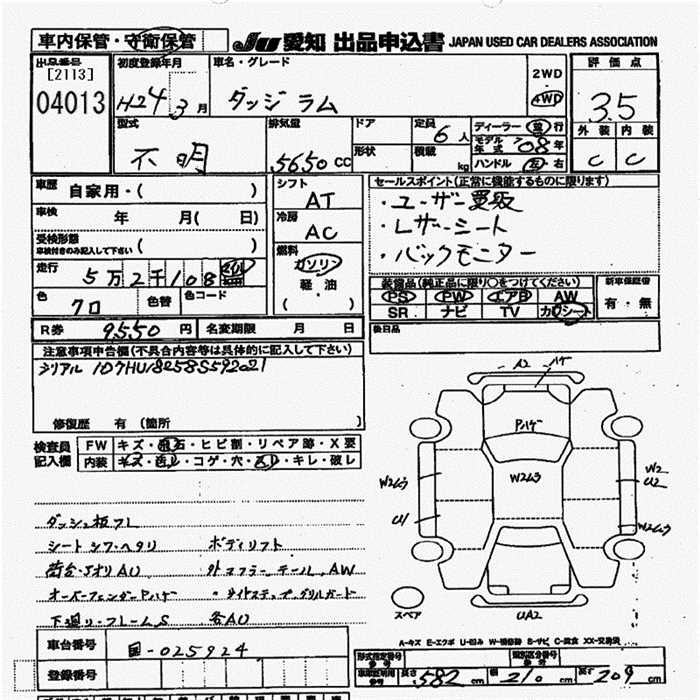 車内保管・守衛保管
JU 愛知 出品申込書 JAPAN USED CAR DEALERS ASSOCIATION
出品番号
[2113]
04013
初度登録年月
H24 3 月
車名・グレード
ダッジ ラム
2WD
4WD
評価点
3.5
外装 内装
C C
型式
不明
排気量
5650 CC
ドア
形状
定員
6 人
積載
kg
ディーラー・並・行
モデル年式 '08年
ハンドル 左・右
車歴 自家用・( )
車検 年 月( 日)
受検形態 ( )
車検付きのみ記入して下さい
走行 5万2千108 マイル
色 クロ 色替 色コード
シフト
AT
冷房
AC
燃料
ガソリン
軽・油
( )
セールスポイント(正常に機能するものに限ります)
・ユーザー買取
・レザーシート
・バックモニター
装備品(純正品に限り○をつけてください)
PS PW エアB AW
SR ナビ TV カワシート
新車保証書
有・無
R券 9550 円 名変期限 月 日
後日品
注意事項申告欄(不具合内容等は具体的に記入して下さい)
シリアル 1D7HU18258S592021
修復歴 有 (箇所 )
検査員記入欄
FW キズ・飛石・ヒビ割・リペア跡・X要
内装 キズ・汚レ・コゲ・穴・スレ・キレ・破レ
ダッシュ板ワレ
シートシワ・ヘタリ ボディリフト
荷台・Jオリ AU 外マフラー、テール、AW
オーバーフェンダーPハゲ サイドステップ、グリルガード
下廻り・フレームS 各AU
A2 ハゲ
Pハゲ
W2ムラ
W2ムラ
U1
W2
U2
W2ムラ
スペア
UA2
A-キズ E-エクボ U-凹み W-補修跡 S-サビ C-腐食 XX-交換済
車台番号 国-025924
登録番号
型式指定番号
類別区分番号
長さ 582 cm 幅 210 cm 高さ 209 cm